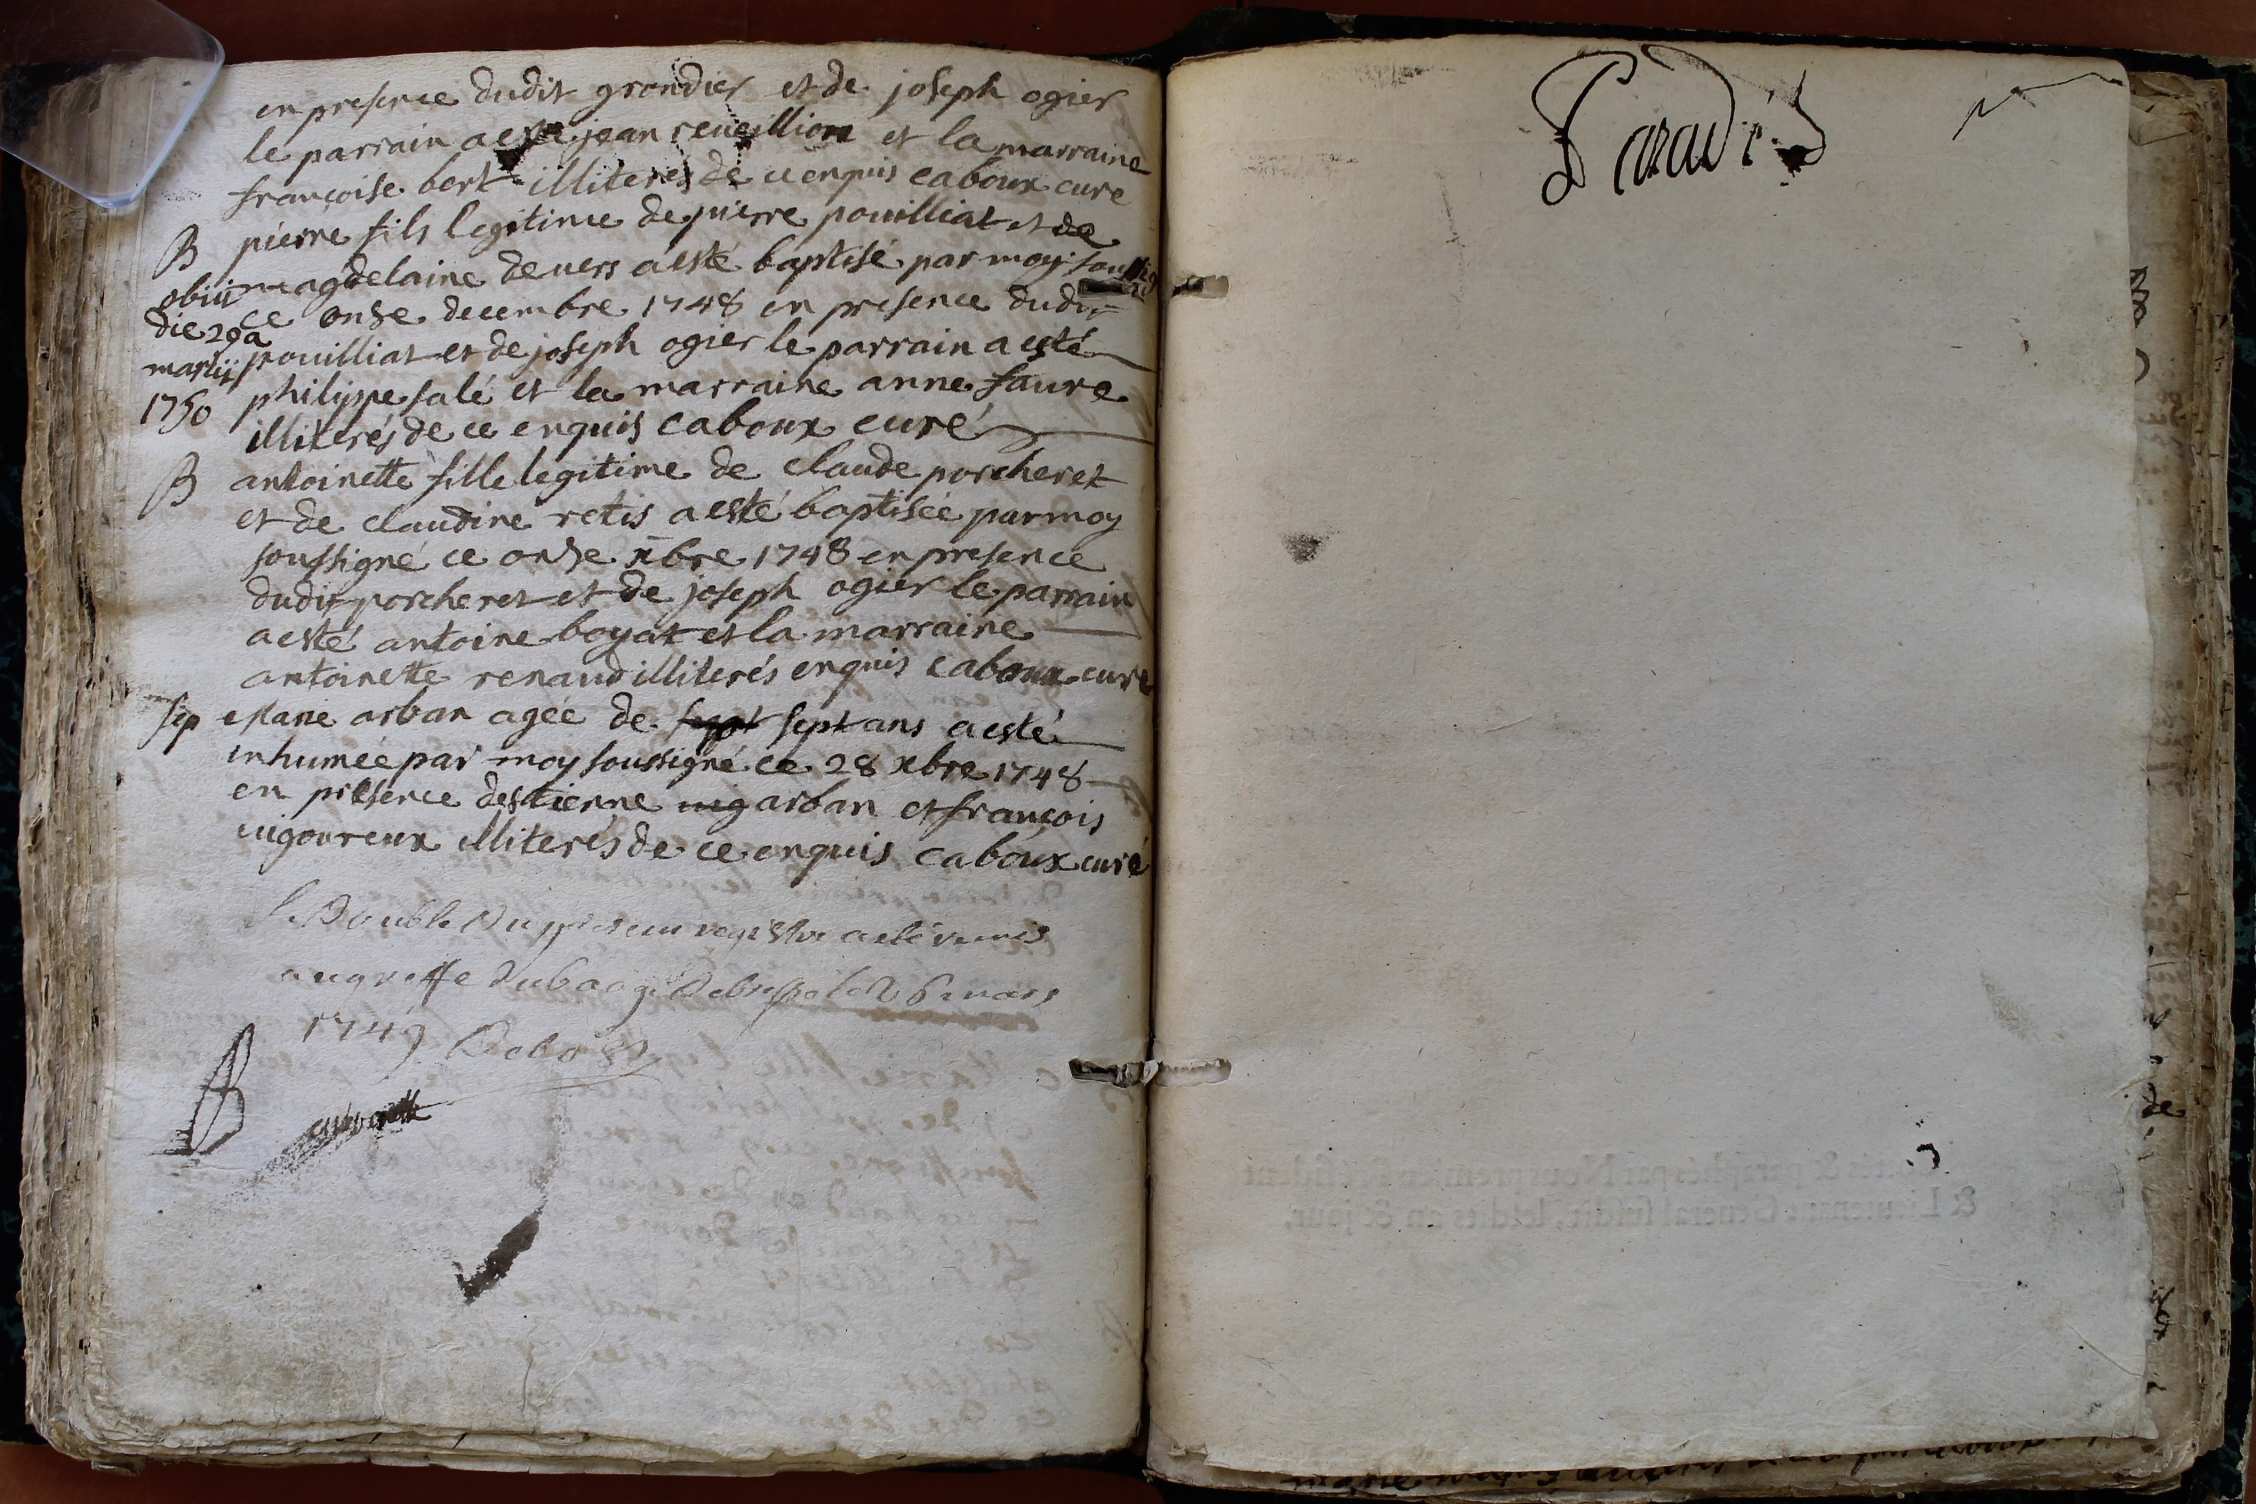 en presence dudit grandier et de joseph ogier
le parrain a esté jean reveillion et la marraine
françoise bert illiterés de ce enquis caboux curé
B pierre fils legitime de pierre pouilliat et de
magdelaine devers a esté baptisé par moy
obiit ce onze decembre 1748 en presence dudit
die 29a
martii pouilliat et de joseph ogier le parrain a esté
1750 philippe salé et la marraine anne faure
illiterés de ce enquis caboux curé
B antoinette fille legitime de claude porcheret
et de claudine retis a esté baptisée par moy
soussigné ce onze xbre 1748 en presence
dudit porcheret et de joseph ogier le parrain
a esté antoine boyat et la marraine
antoinette renaud illiterés enquis caboux curé
sep estane arban agée de sept sept ans a esté
inhumée par moy soussigné ce 28 xbre 1748
en presence destienne arban et françois
vigoureux illiterés de ce enquis caboux curé
le Double Du present registre a esté remis
au greffe du De bresse le 26 mars
1749
Paradis
& paraphés par Nous premier Président
& Lieutenant General susdit, lesdits an & jour,
de